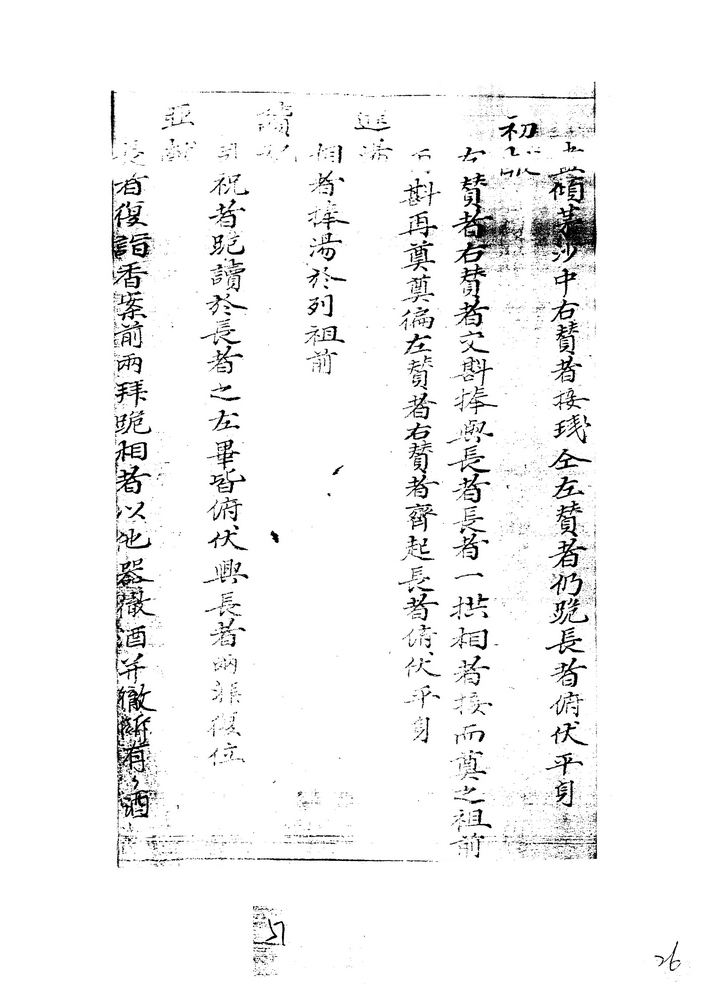 傾茅沙中右贊者接琖仝左贊者仍跪長者俯伏平身
初
左贊者右贊者交斟捧與長者長者一拱相者接而奠之祖前
斟再奠奠徧左贊者右贊者齊起長者俯伏平身
進湯
相者捧湯於列祖前
讀祝
祝者跪讀於長者之左畢皆俯伏興長者兩拜復位
亞獻
長者復詣香案前兩拜跪相者以他器撤酒并撤所有酒
51
26